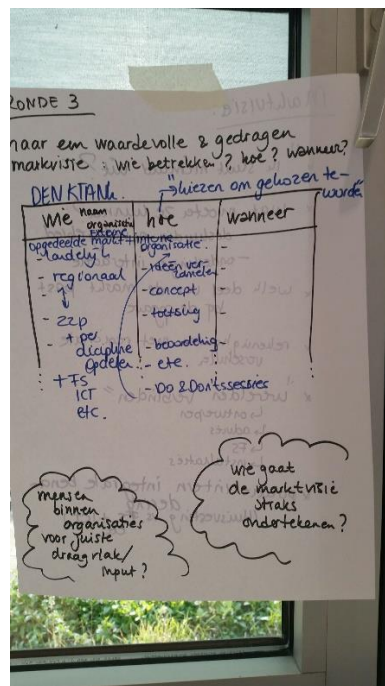 RONDE 3
naar een waardevolle & gedragen
markvisie : wie betrekken? hoe? wanneer?
DENKTANK
"kiezen om gekozen te worden"
wie naam organisatie
hoe
wanneer
opgedeelde markt + interne organisatie
- landelijk
- regionaal
- ZZP
+ per
discipline
opdelen
+ TS
ICT
etc.
- ideeën verzamelen
- concept
- toetsing
- beoordeling
- etc.
- Do & Don'tssessies
mensen
binnen
organisaties
voor juiste
draagvlak/
input?
wie gaat
de marktvisie
straks
ondertekenen?